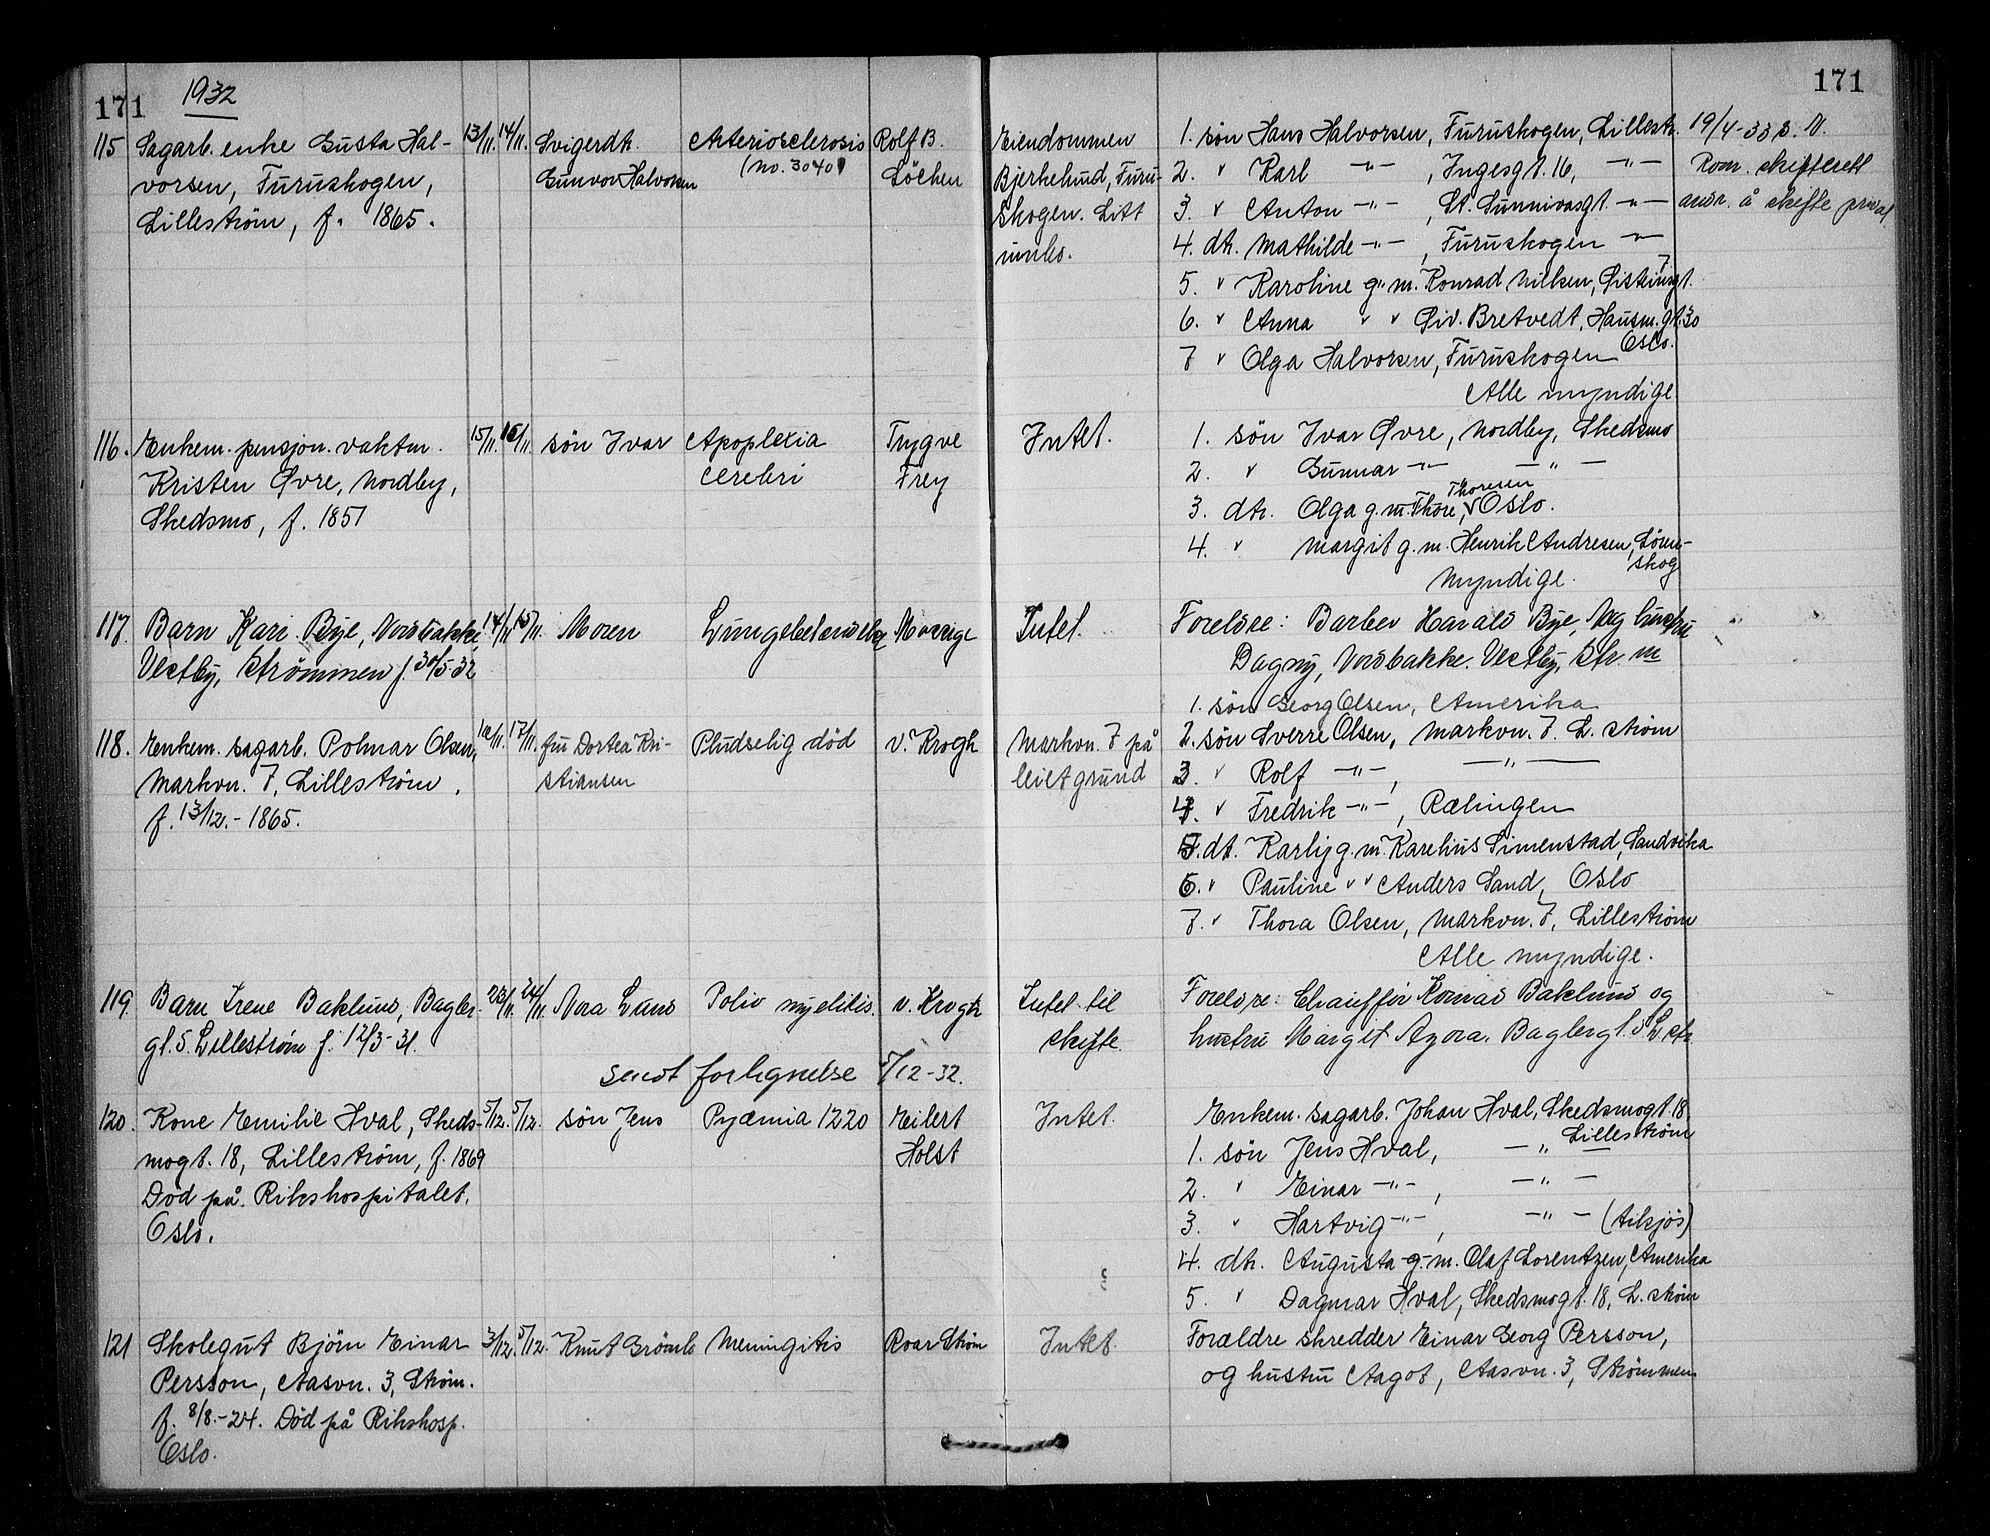 171 1932 171
115 Sagarb. enke Gusta Hal- 13/11. 14/11. Svigerdt. Arteriosclerosis Rolf B. Eiendommen 1. søn Hans Halvorsen, Furuskogen, Lillestr. 19/4-33 s. N.
vorsen, Furuskogen, Gunvor Halvorsen (no. 3040) Löchen Bjerkelund, Furu- 2. " Karl -"- , Ingesgt. 16, -"- Rom. skifterett
Lilleström, f. 1865. skogen. Litt 3. " Anton -"- , St. Sunnivasgt. -"- anv. å skifte privat
innbo. 4. dt. Mathilde -"- , Furuskogen -"-
5. " Karoline g. m. Konrad Nilsen,
6. " Anna " " Eiv. Bretvedt, Hausm. gt. 30
Oslo.
7 " Olga Halvorsen, Furuskogen
Alle myndige
116. Enkem. pensjon. vaktm. 15/11. 16/11. søn Ivar Apoplexia Trygve Intet. 1. søn Ivar Øvre, Nordby, Skedsmo
Kristen Øvre, Nordby, cerebri Frey 2. " Gunnar -"- -"-
Skedsmo, f. 1851 3. dtr. Olga g. m. Thore Thoresen, Oslo.
4. " Margit g. m. Henrik Andresen, Lören-
skog
Myndige.
117. Barn Kari Bye, Nordbakke, 14/11 15/11. Moren Lungebetendelse Mossige Intet. Foreldre: Barber Harald Bye, og hustru
Vestby, Strømmen f. 30/5-32 Dagny, Nordbakke. Vestby, Str m
1. søn Georg Olsen, Amerika
118. Enkem. sagarb. Polmar Olsen, 16/11. 17/11. fru Dortea Kri- Pludselig död v. Krogh Markvn. 7 på 2. søn Sverre Olsen, Markvn. 7. L. ström
Markvn. 7, Lilleström. stiansen leiet grund 3 " Rolf -"-, -"-
f. 13/12.-1865. 4. " Fredrik -"-, Rælingen
5. dt. Karly g. m. Karelius Simenstad, Sandvika
6. " Pauline " " Anders Sand, Oslo
7. " Thora Olsen, Markvn. 7, Lilleström
Alle myndige.
119. Barn Irene Baklund, Bagler- 23/11. 24/11. Nora Lund Polio myelitis. v. Krogh Intet til Foreldre: Chaufför Konrad Baklund og
gt. 5. Lilleström f. 12/3-31. skifte. hustru Margit Agora. Baglergt. 5 L. str
sendt forlignelse 5/12-32.
120. Kone Emilie Hval, Skeds- 5/12. 5/12. søn Jens Pyæmia 1220 Eilert Intet. Enkem. sagarb. Johan Hval, Skedsmogt. 18
mogt. 18, Lilleström, f. 1869 Holst Lilleström
1. søn Jens Hval, -"-
Död på Rikshospitalet. 2. " Einar -"-, -"-
Oslo. 3. " Hartvig -"-, -"- (tilsjös)
4. dtr. Augusta g. m. Olaf Lorentzen, Amerika
5. " Dagmar Hval, Skedsmogt. 18, L. ström
121 Skolegut Björn Einar 3/12. 5/12. Knut Meningitis Roar Ström Intet. Forældre shredder Einar Georg Persson,
Persson, Aasvn. 3, Ström. og hustru Aagot, Aasvn. 3, Strömmen
f. 8/8.-24. Död på Rikshosp.
Oslo.